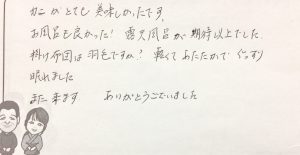 カニがとても美味しかったです。
お風呂も良かった! 露天風呂が期待以上でした。
掛け布団は羽毛ですか? 軽くてあたたかで ぐっすり
眠れました
また来ます ありがとうございました